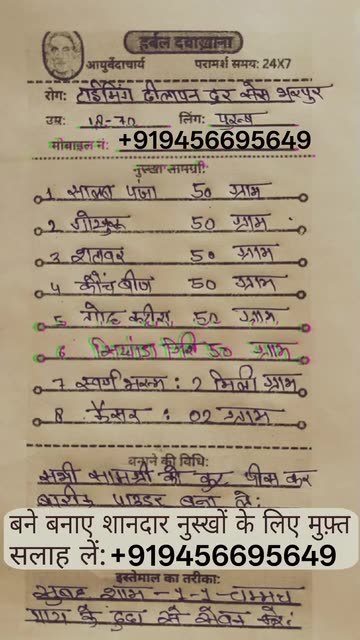 हर्बल दवाख़ाना
आयुर्वेदाचार्य परामर्श समय: 24X7
रोग: टाईमिंग ढीलापन दूर सैस भरपुर
उम्र: 18-70 लिंग: पुरुष
मोबाइल नं: +919456695649
नुस्खा सामग्री:
1 सालब पंजा 50 ग्राम
2 गोखुरू 50 ग्राम
3 शतावर 50 ग्राम
4 कौंच बीज 50 ग्राम
5 गोंद कतीरा 50 ग्राम
6 गिरि 50 ग्राम
7 स्वर्ण भस्म : 2 मिली ग्राम
8 कैसर : 02 ग्राम
बनाने की विधि:
सभी सामग्री को कुट पीस कर
बारीक पाउडर बना ले:
बने बनाए शानदार नुस्खों के लिए मुफ़्त
सलाह लें: +919456695649
इस्तेमाल का तरीका:
सुबह शाम -१-१- चम्मच
गाय के दुध से सेवन करे: